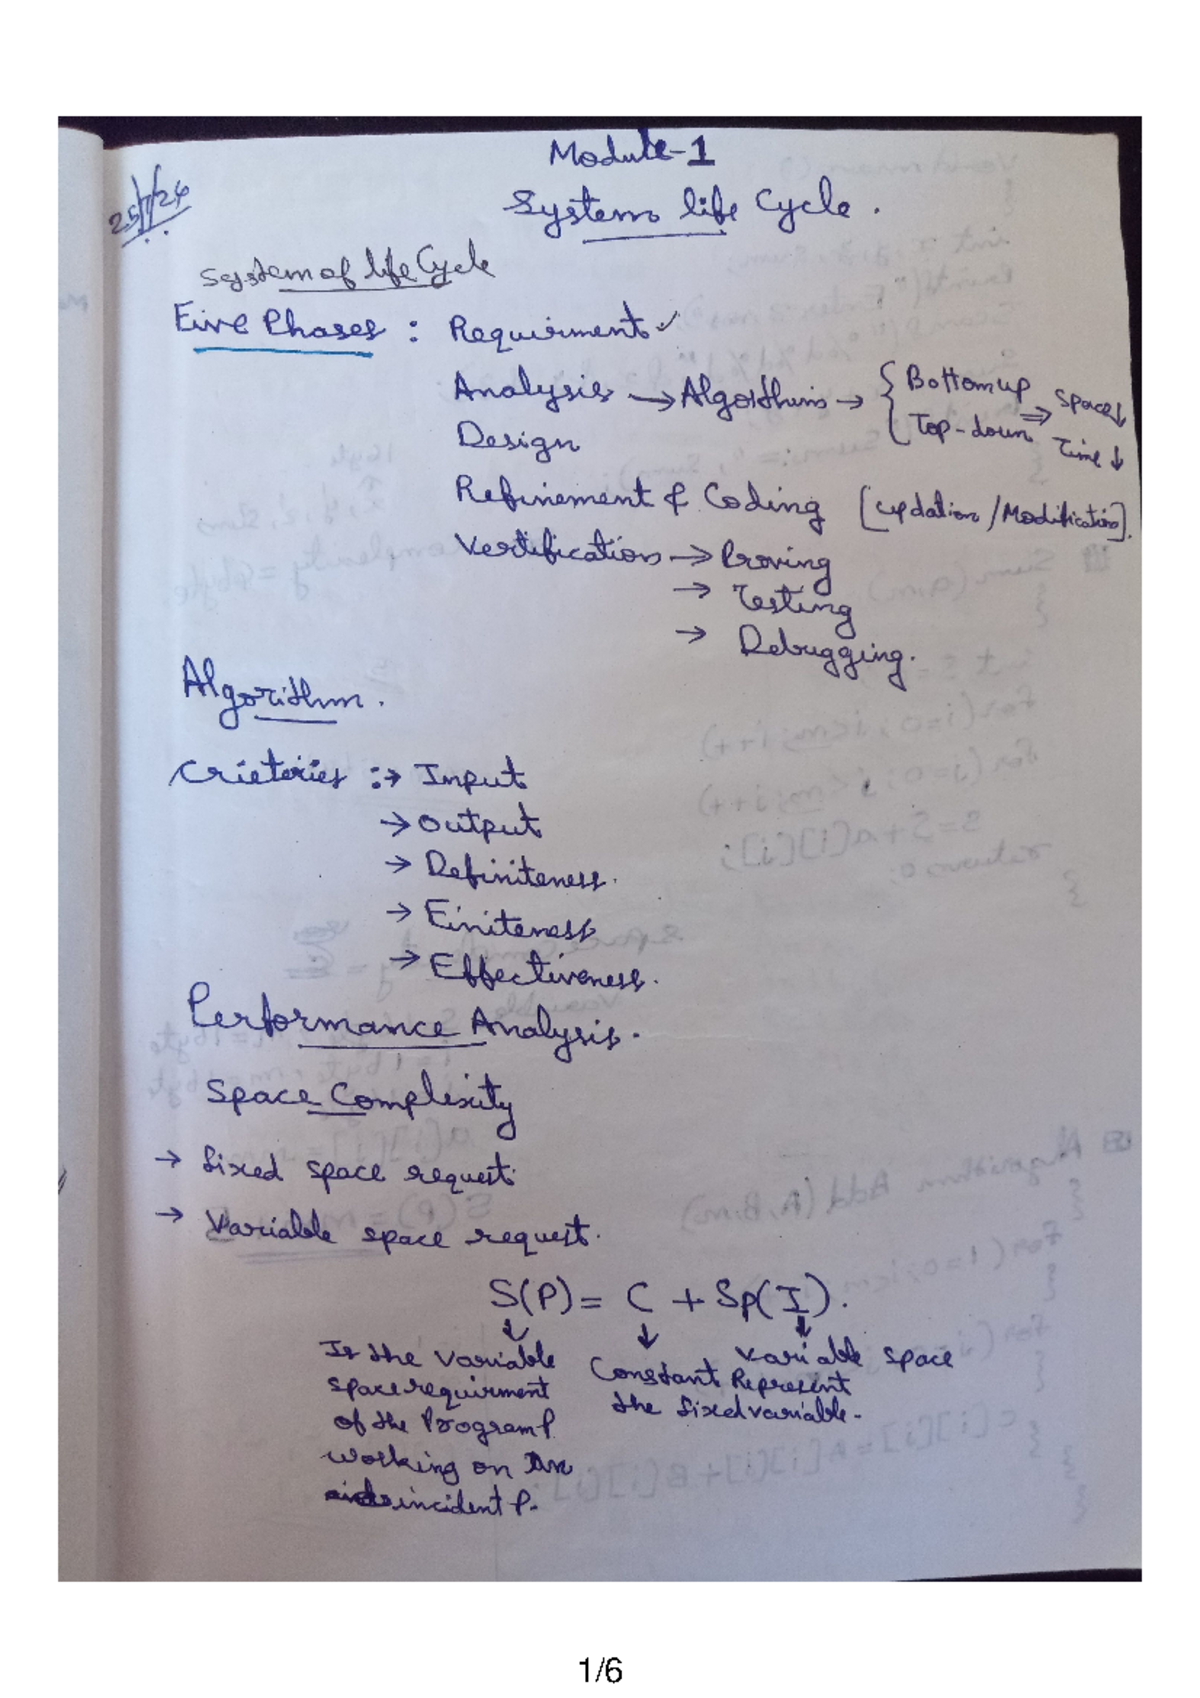 Module-1
25/7/24
System life Cycle.
System of life Cycle
Five Phases : Requirment ✓
Analysis → Algorithms → { Bottom up
Top-down ⇒ Space↓
Time ↓
Design
Refinement & Coding [updation / Modification].
Vertification → Proving
→ Testing
→ Debugging.
Algorithm.
Crieteries :→ Input
→ Output
→ Definiteness.
→ Finiteness
→ Effectiveness.
Performance Analysis.
Space Complexity
→ fixed space request.
→ Variable space request.
S(P) = C + Sp(I).
↓ ↓ ↓
Is the variable
space requirment
of the Program P.
working on An
incident P.
Constant Represent
the fixed variable.
variable space
1/6